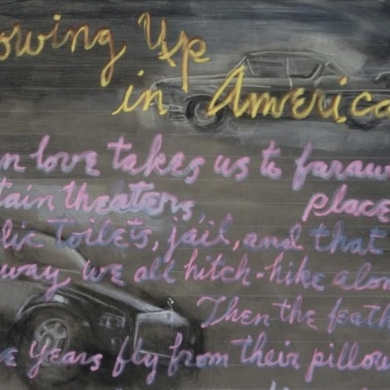 owing Up
in America
n love takes us to faraw
tain theaters, place
lic toilets, jail, and that
way we all hitch-hike alon
Then the feath
e years fly from their pillow